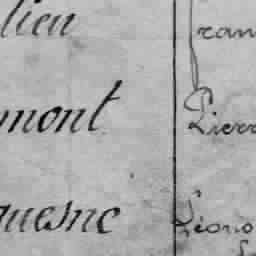 lien ran
mont Pierr
quesne Léono